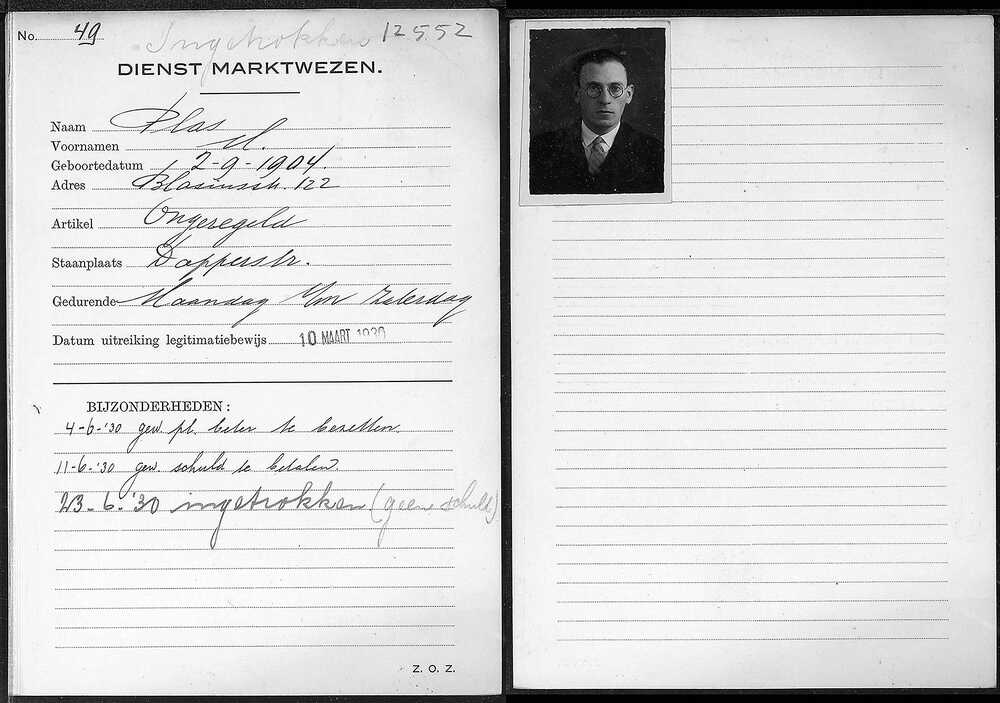 No. 49 Ingetrokken 12552
DIENST MARKTWEZEN.
Naam Plas
Voornamen M.
Geboortedatum 2-9-1904.
Adres Blasiusstr. 122
Artikel Ongeregeld
Staanplaats Dapperstr.
Gedurende Maandag t/m Zaterdag
Datum uitreiking legitimatiebewijs 10 MAART 1930
BIJZONDERHEDEN:
4-6-'30 gew. pl. beter te bezetten.
11-6-'30 gew. schuld te betalen.
23-6-'30 ingetrokken (geene schuld)
Z. O. Z.